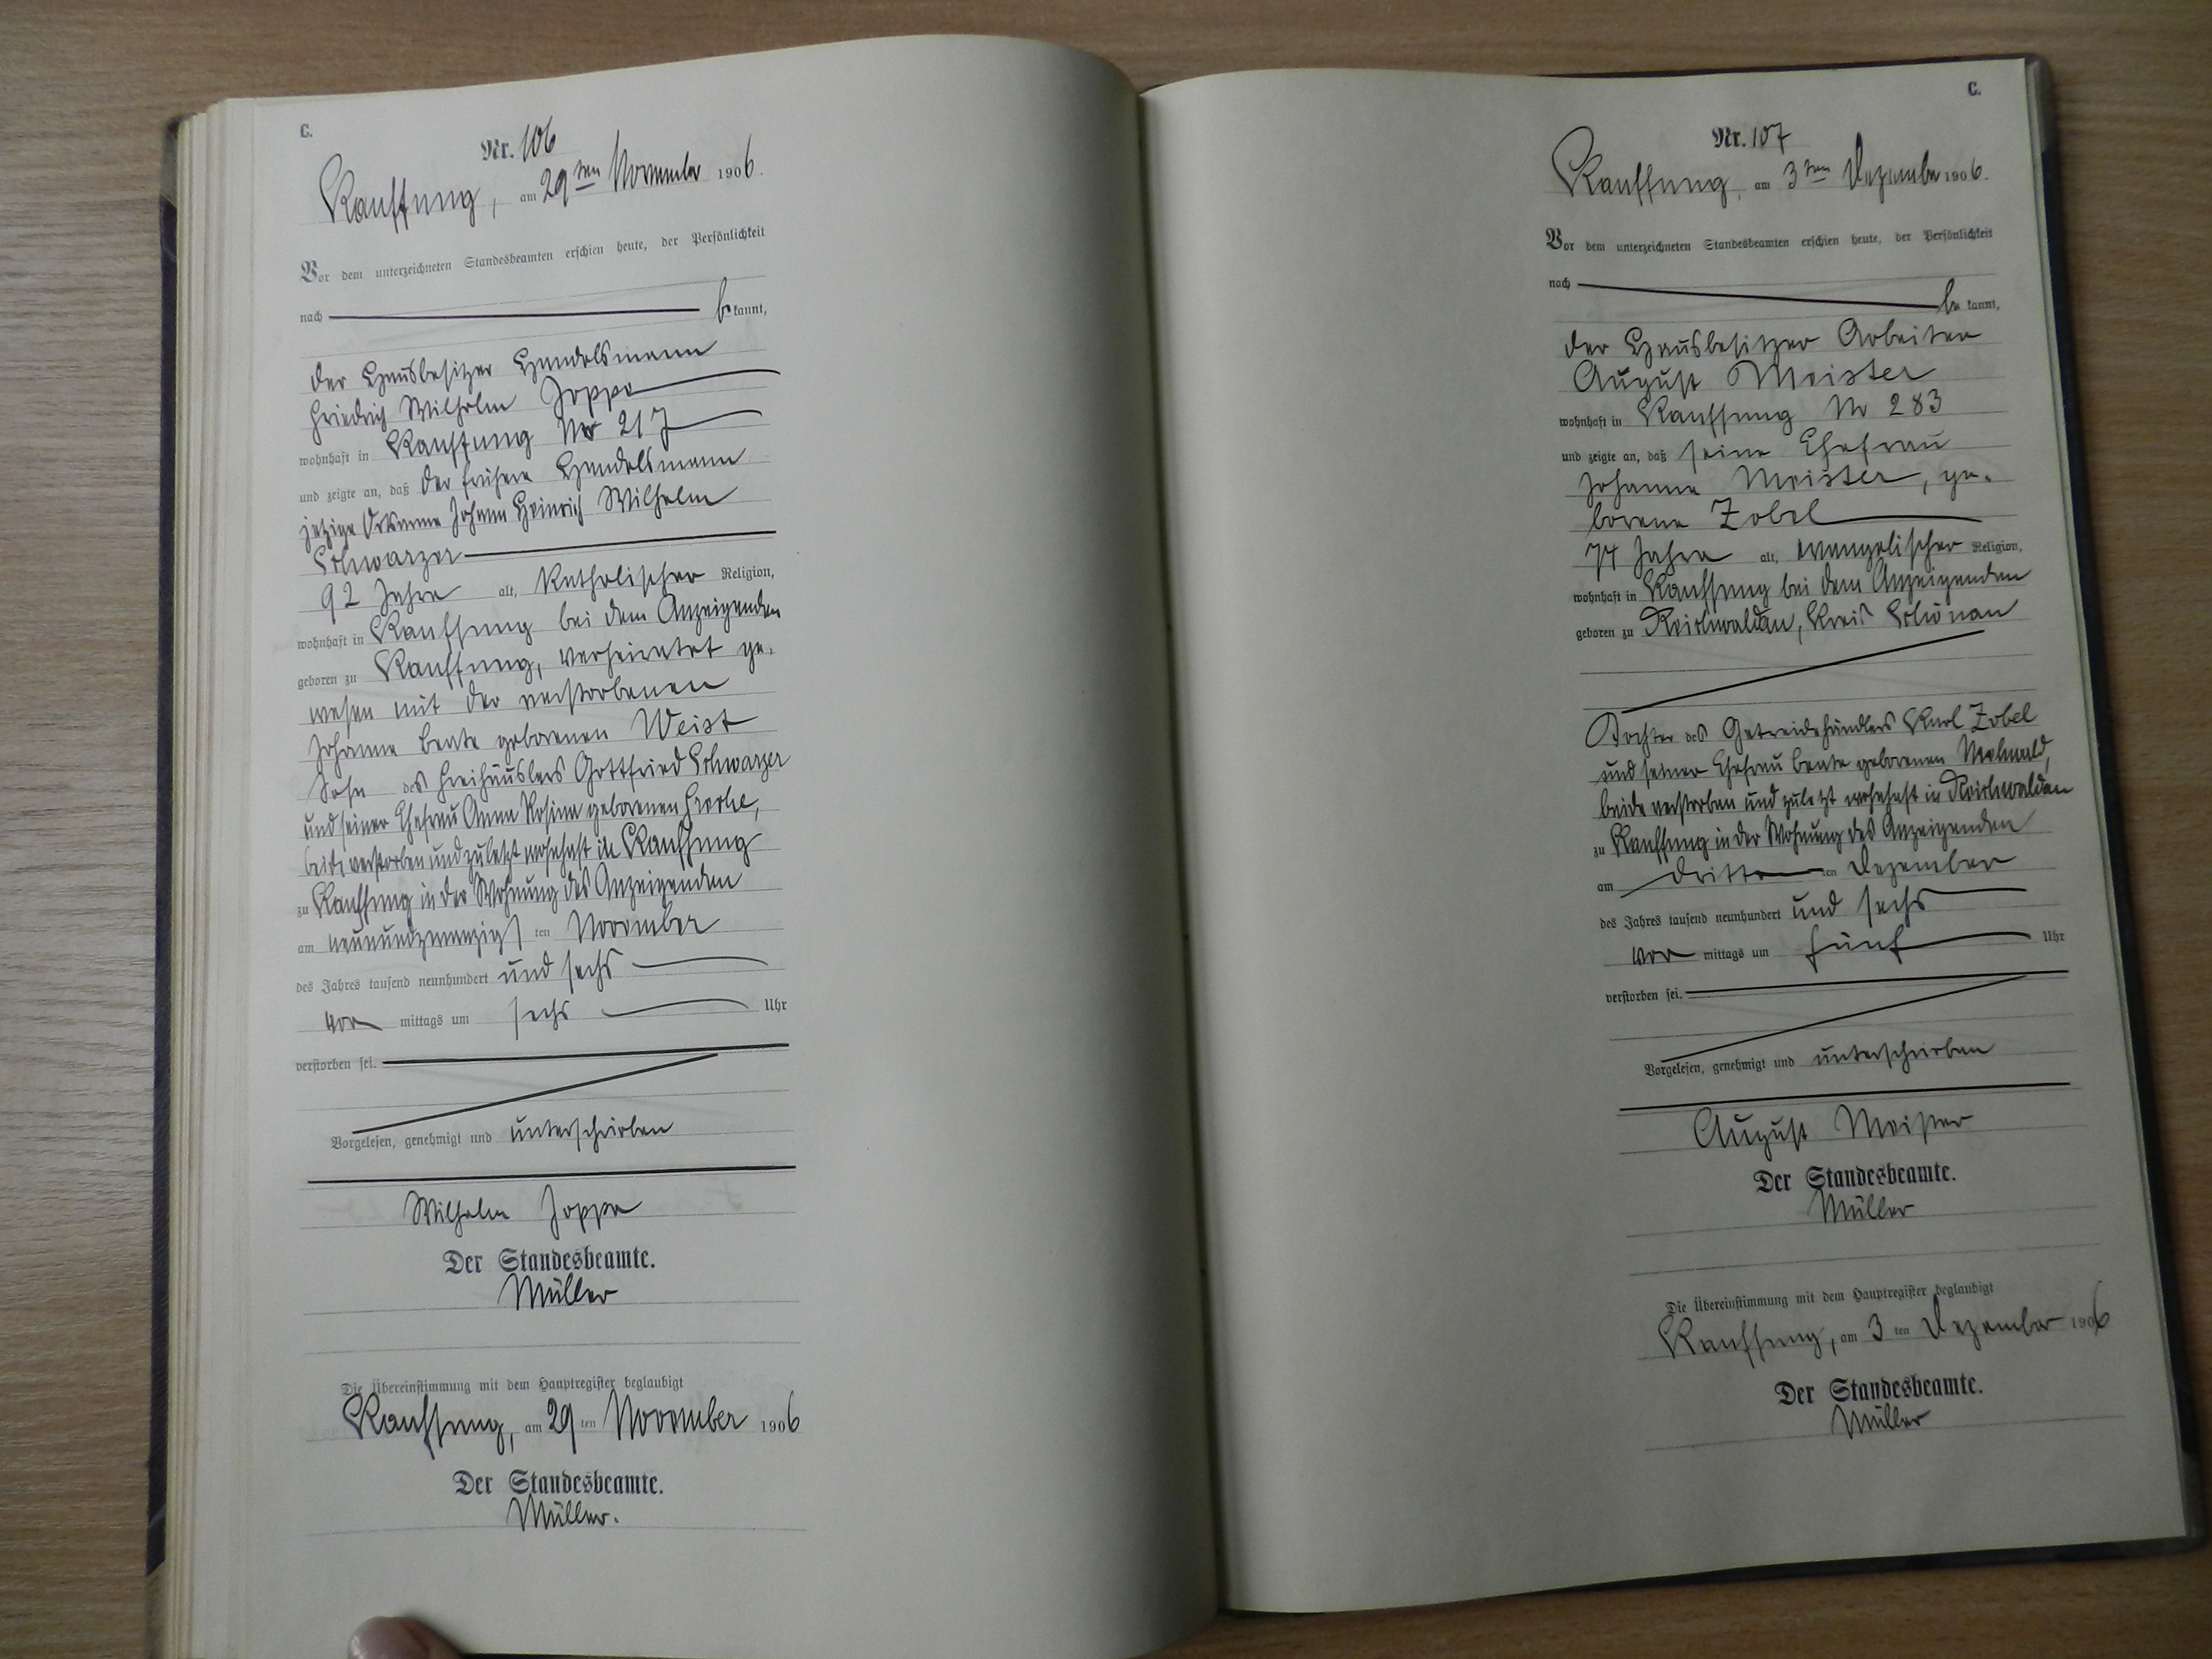 C.
Nr. 106
Kauffung, am 29ten November 1906.
Vor dem unterzeichneten Standesbeamten erschien heute, der Persönlichkeit
nach be kannt,
der Hausbesitzer Handelsmann
Friedrich Wilhelm Joppe
wohnhaft in Kauffung No 217
und zeigte an, daß der frühere Handelsmann
jetzige Ortsarme Johann Heinrich Wilhelm
Schwarzer
92 Jahre alt, katholischer Religion,
wohnhaft in Kauffung bei dem Anzeigenden
geboren zu Kauffung, verheiratet ge-
wesen mit der verstorbenen
Johanne Beate geborenen Weist
Sohn des Freihäuslers Gottfried Schwarzer
und seiner Ehefrau Anna Rosina geborenen
beide verstorben und zuletzt wohnhaft in Kauffung
zu Kauffung in der Wohnung des Anzeigenden
am neunundzwanzigs ten November
des Jahres tausend neunhundert und sechs
vor mittags um sechs Uhr
verstorben sei.
Vorgelesen, genehmigt und unterschrieben
Wilhelm Joppe
Der Standesbeamte.
Müller
Die Übereinstimmung mit dem Hauptregister beglaubigt
Kauffung, am 29 ten November 1906
Der Standesbeamte.
Müller.
C.
Nr. 107
Kauffung, am 3ten Dezember 1906.
Vor dem unterzeichneten Standesbeamten erschien heute, der Persönlichkeit
nach be kannt,
der Hausbesitzer Arbeiter
August Meister
wohnhaft in Kauffung No 283
und zeigte an, daß seine Ehefrau
Johanne Meister, ge-
borene Zobel
74 Jahre alt, evangelischer Religion,
wohnhaft in Kauffung bei dem Anzeigenden
geboren zu Reichwaldau, Kreis Schönau
Tochter des Getreidehändlers Karl Zobel
und seiner Ehefrau Beate geborenen
beide verstorben und zuletzt wohnhaft in Reichwaldau
zu Kauffung in der Wohnung des Anzeigenden
am dritten Dezember
des Jahres tausend neunhundert und sechs
vor mittags um fünf Uhr
verstorben sei.
Vorgelesen, genehmigt und unterschrieben
August Meister
Der Standesbeamte.
Müller
Die Übereinstimmung mit dem Hauptregister beglaubigt
Kauffung, am 3 ten Dezember 1906
Der Standesbeamte.
Müller